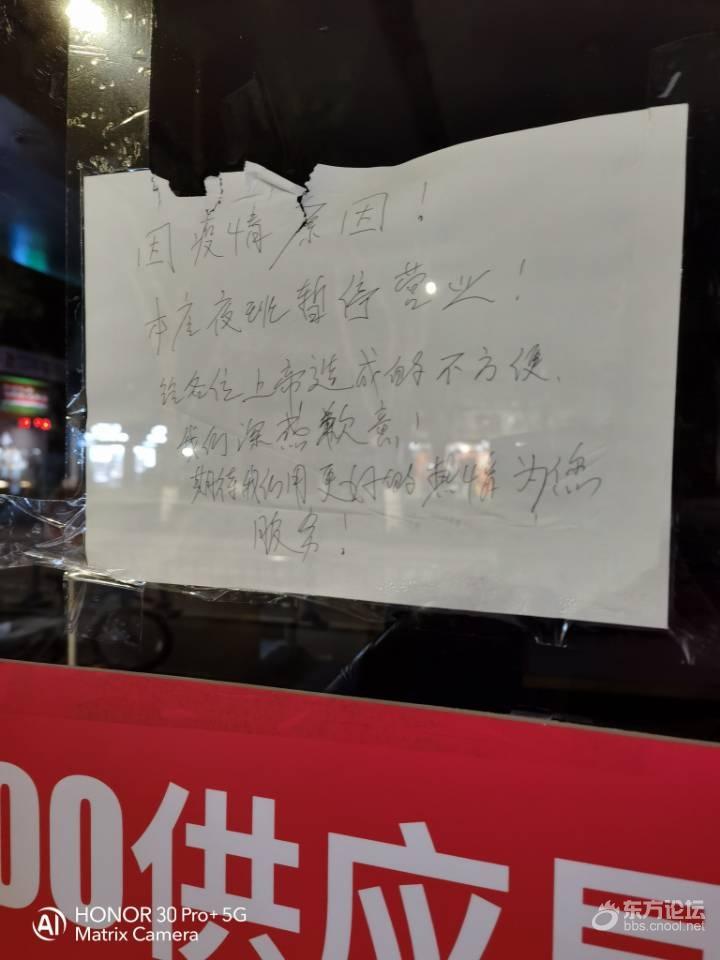 因疫情原因！
本店夜班暂停营业！
给各位上帝造成的不方便、
我们深感歉意！
期待我们用更好的热情为您
服务！
00供应
HONOR 30 Pro+ 5G
AI
Matrix Camera
东方论坛
bbs.cnool.net